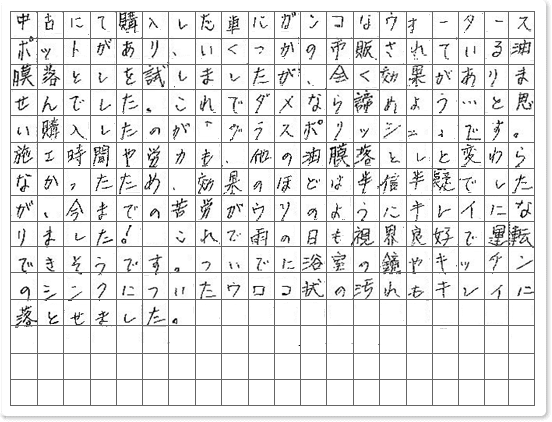 中古にて購入した車にガンコなウォータース
ポットがあり、いくつかの市販されている油
膜落としを試しましたが、全く効果がありま
せんでした。これでダメなら諦めよう…と思
い購入したのが"グラスポリッシュ"です。
施工時間や労力も、他の油膜落としと変わら
なかったため、効果のほどは半信半疑でした
が、今までの苦労がウソのようにキレイにな
りました！　これで雨の日も視界良好で運転
できそうです。ついでに浴室の鏡やキッチン
のシンクについたウロコ状の汚れもキレイに
落とせました。